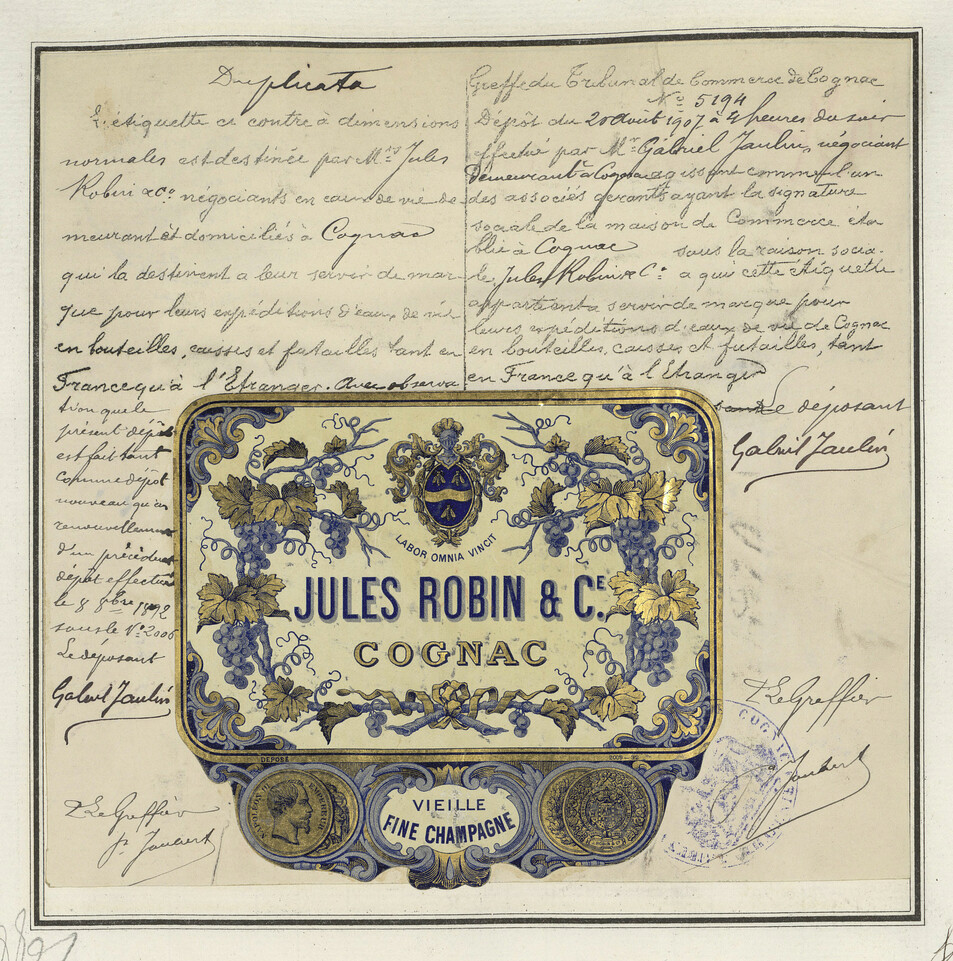 Duplicata
L'étiquette ci contre à dimensions
normales est destinée par Mrs Jules
Robin & Co négociants en eaux de vie de
meurant et domiciliés à Cognac
qui la destinent a leur servir de mar-
que pour leurs expéditions d'eaux de vie
en bouteilles, caisses et futailles tant en
France qu'à l'Etranger. Avec observa
tion que le
présent dépôt
est fait tant
comme dépôt
nouveau qu'en
renouvellement
d'un précédent
dépôt effectué
le 8 8bre 1892
sous le No 2006
Le déposant
Gabriel Jaulin
Le Greffier
Joubert
Greffe du Tribunal de Commerce de Cognac
No 5194
Dépôt du 20 août 1907 à 4 heures du soir
effectué par Mr Gabriel Jaulin, négociant
demeurant à Cognac agissant comme l'un
des associés gérants ayant la signature
sociale de la maison de Commerce éta
blie à Cognac sous la raison socia-
le Jules Robin & Co a qui cette étiquette
appartient servir de marque pour
leurs expéditions d'eaux de vie de Cognac
en bouteilles, caisses et futailles, tant
en France qu'à l'Etranger
Le déposant
Gabriel Jaulin
LABOR OMNIA VINCIT
JULES ROBIN & CE.
COGNAC
DÉPOSÉ
2005
VIEILLE
FINE CHAMPAGNE
Le Greffier
Joubert
COGNAC